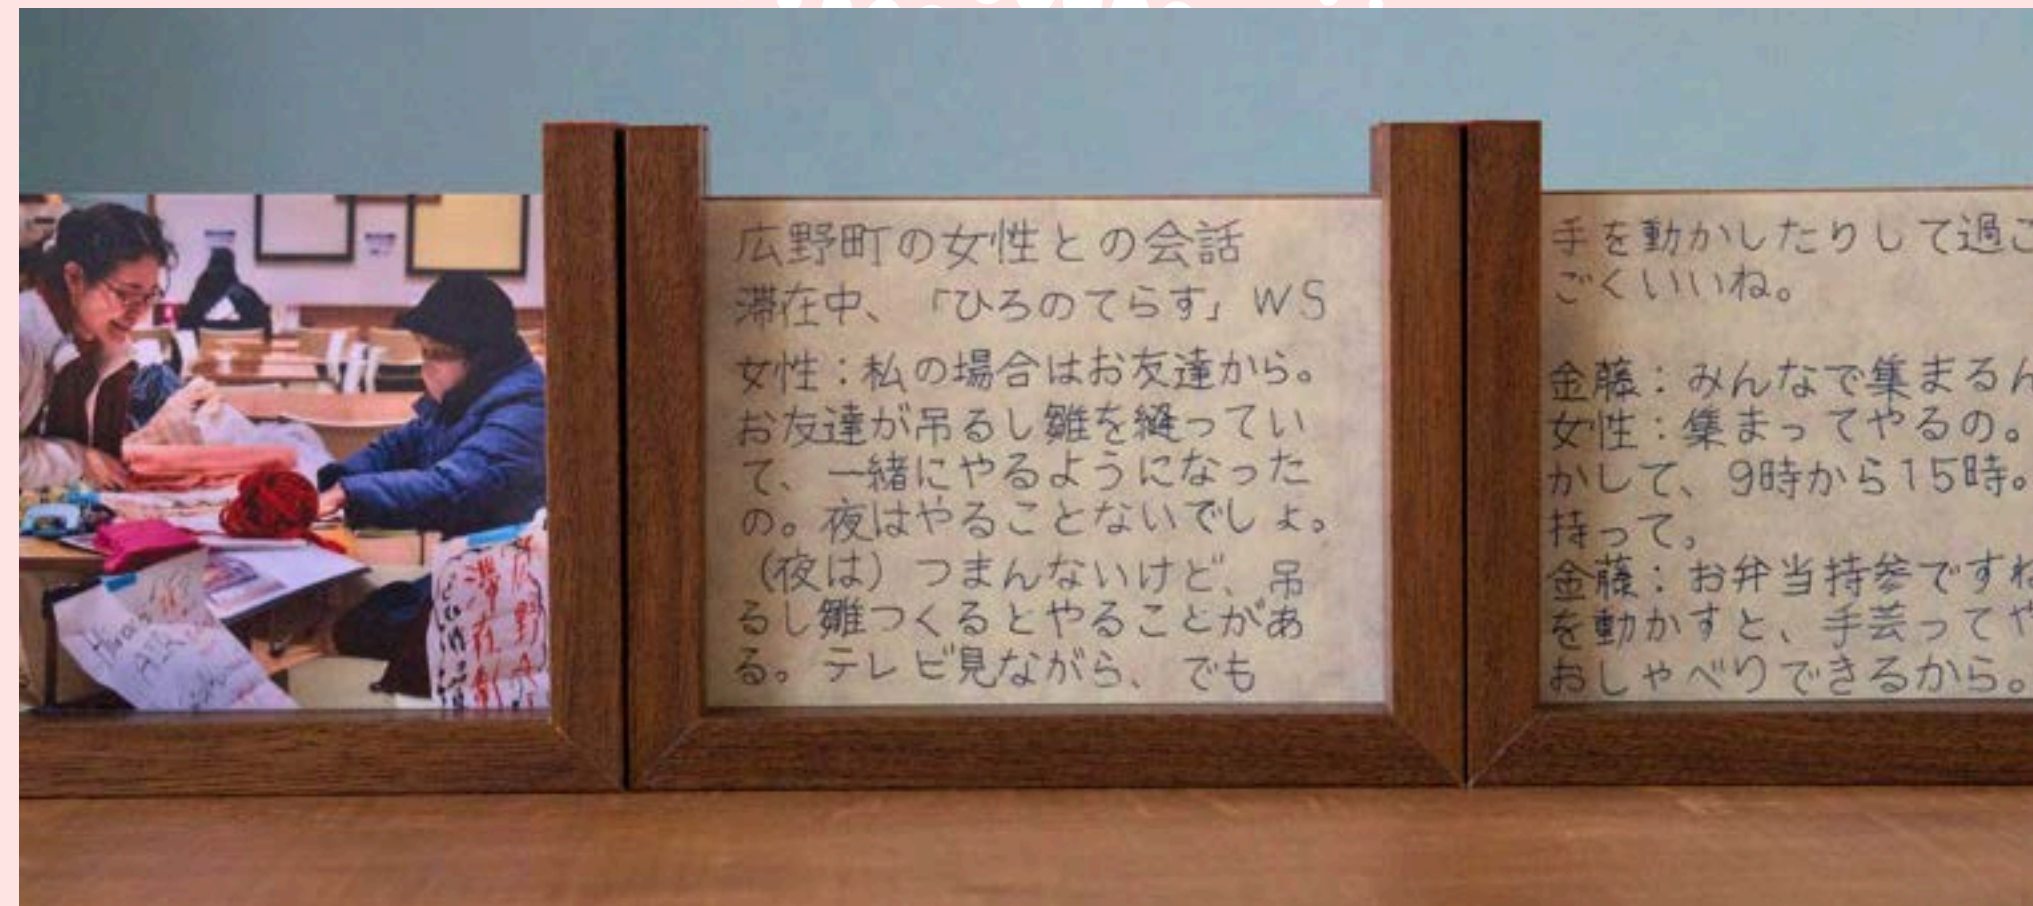 広野町の女性との会話
滞在中、「ひろのてらす」WS
女性：私の場合はお友達から。
お友達が吊るし雛を縫ってい
て、一緒にやるようになった
の。夜はやることないでしょ。
（夜は）つまんないけど、吊
るし雛つくるとやることがあ
る。テレビ見ながら、でも
手を動かしたりして過ご
ごくいいね。
金藤：みんなで集まるん
女性：集まってやるの。
かして、9時から15時。
持って。
金藤：お弁当持参ですね
を動かすと、手芸ってや
おしゃべりできるから。